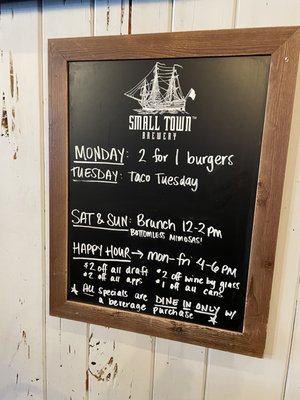 SMALL TOWN™
BREWERY
MONDAY: 2 for 1 burgers
TUESDAY: Taco Tuesday
SAT & SUN: Brunch 12-2pm
BOTTOMLESS MIMOSAS!
HAPPY HOUR → mon-fri 4-6PM
$2 off all draft * 2 off wine by glass
* 2 off all apps * 1 off all cans
* ALL specials are DINE IN ONLY w/
a beverage purchase *